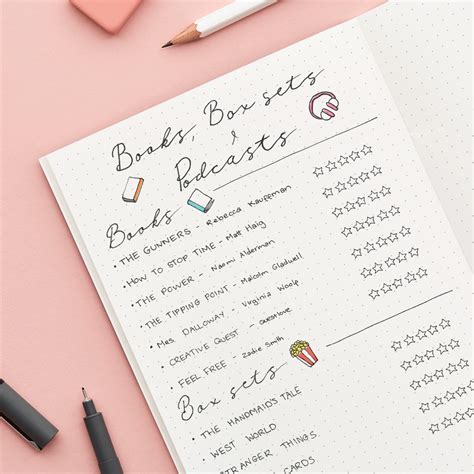 Books, Box sets
&
Podcasts
Books
• THE GUNNERS - Rebecca Kauffman
• HOW TO STOP TIME - Matt Haig
• THE POWER - Naomi Alderman
• THE TIPPING POINT - Malcolm Gladwell
• Mrs. DALLOWAY - Virginia Woolf
• CREATIVE QUEST - Questlove
• FEEL FREE - Zadie Smith
Box sets
• THE HANDMAID'S TALE
• WEST WORLD
STRANGER THINGS
CARDS